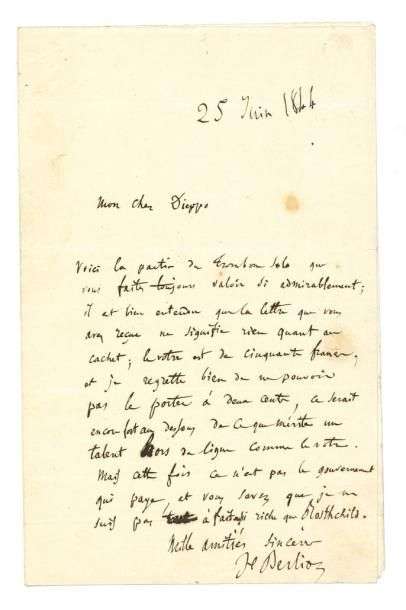 25 Juin 1844
Mon cher Dieppo
Voici la partie de Trombone Solo que
vous faites toujours valoir si admirablement;
il est bien entendu que la lettre que vous
avez reçue ne signifie rien quant au
cachet; le votre est de cinquante francs,
et je regrette bien de ne pouvoir
pas le porter à deux cents, ce serait
encor fort au dessous de ce que mérite un
talent hors de ligne comme le votre.
Mais cette fois ce n'est pas le gouvernement
qui paye, et vous savez que je ne
suis pas à fait aussi riche que Rothschild.
Mille amitiés sincères
H Berlioz